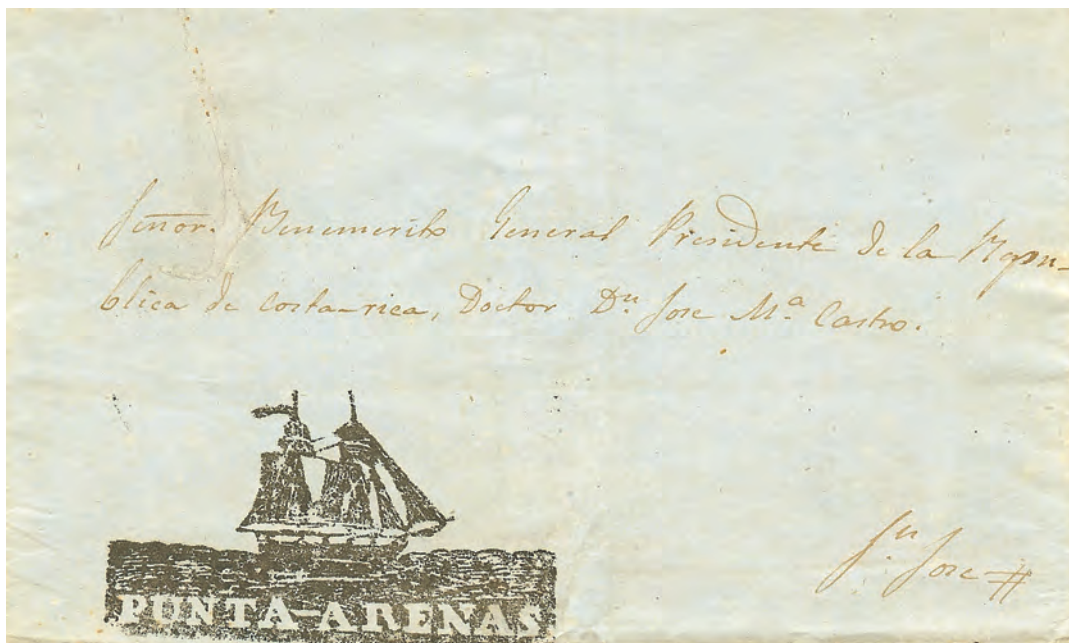 Señor. Benemerito General Presidente de la Repu-
blica de Costa-rica, Doctor Dn Jose Mª Castro.
PUNTA-ARENAS
Sn Jose